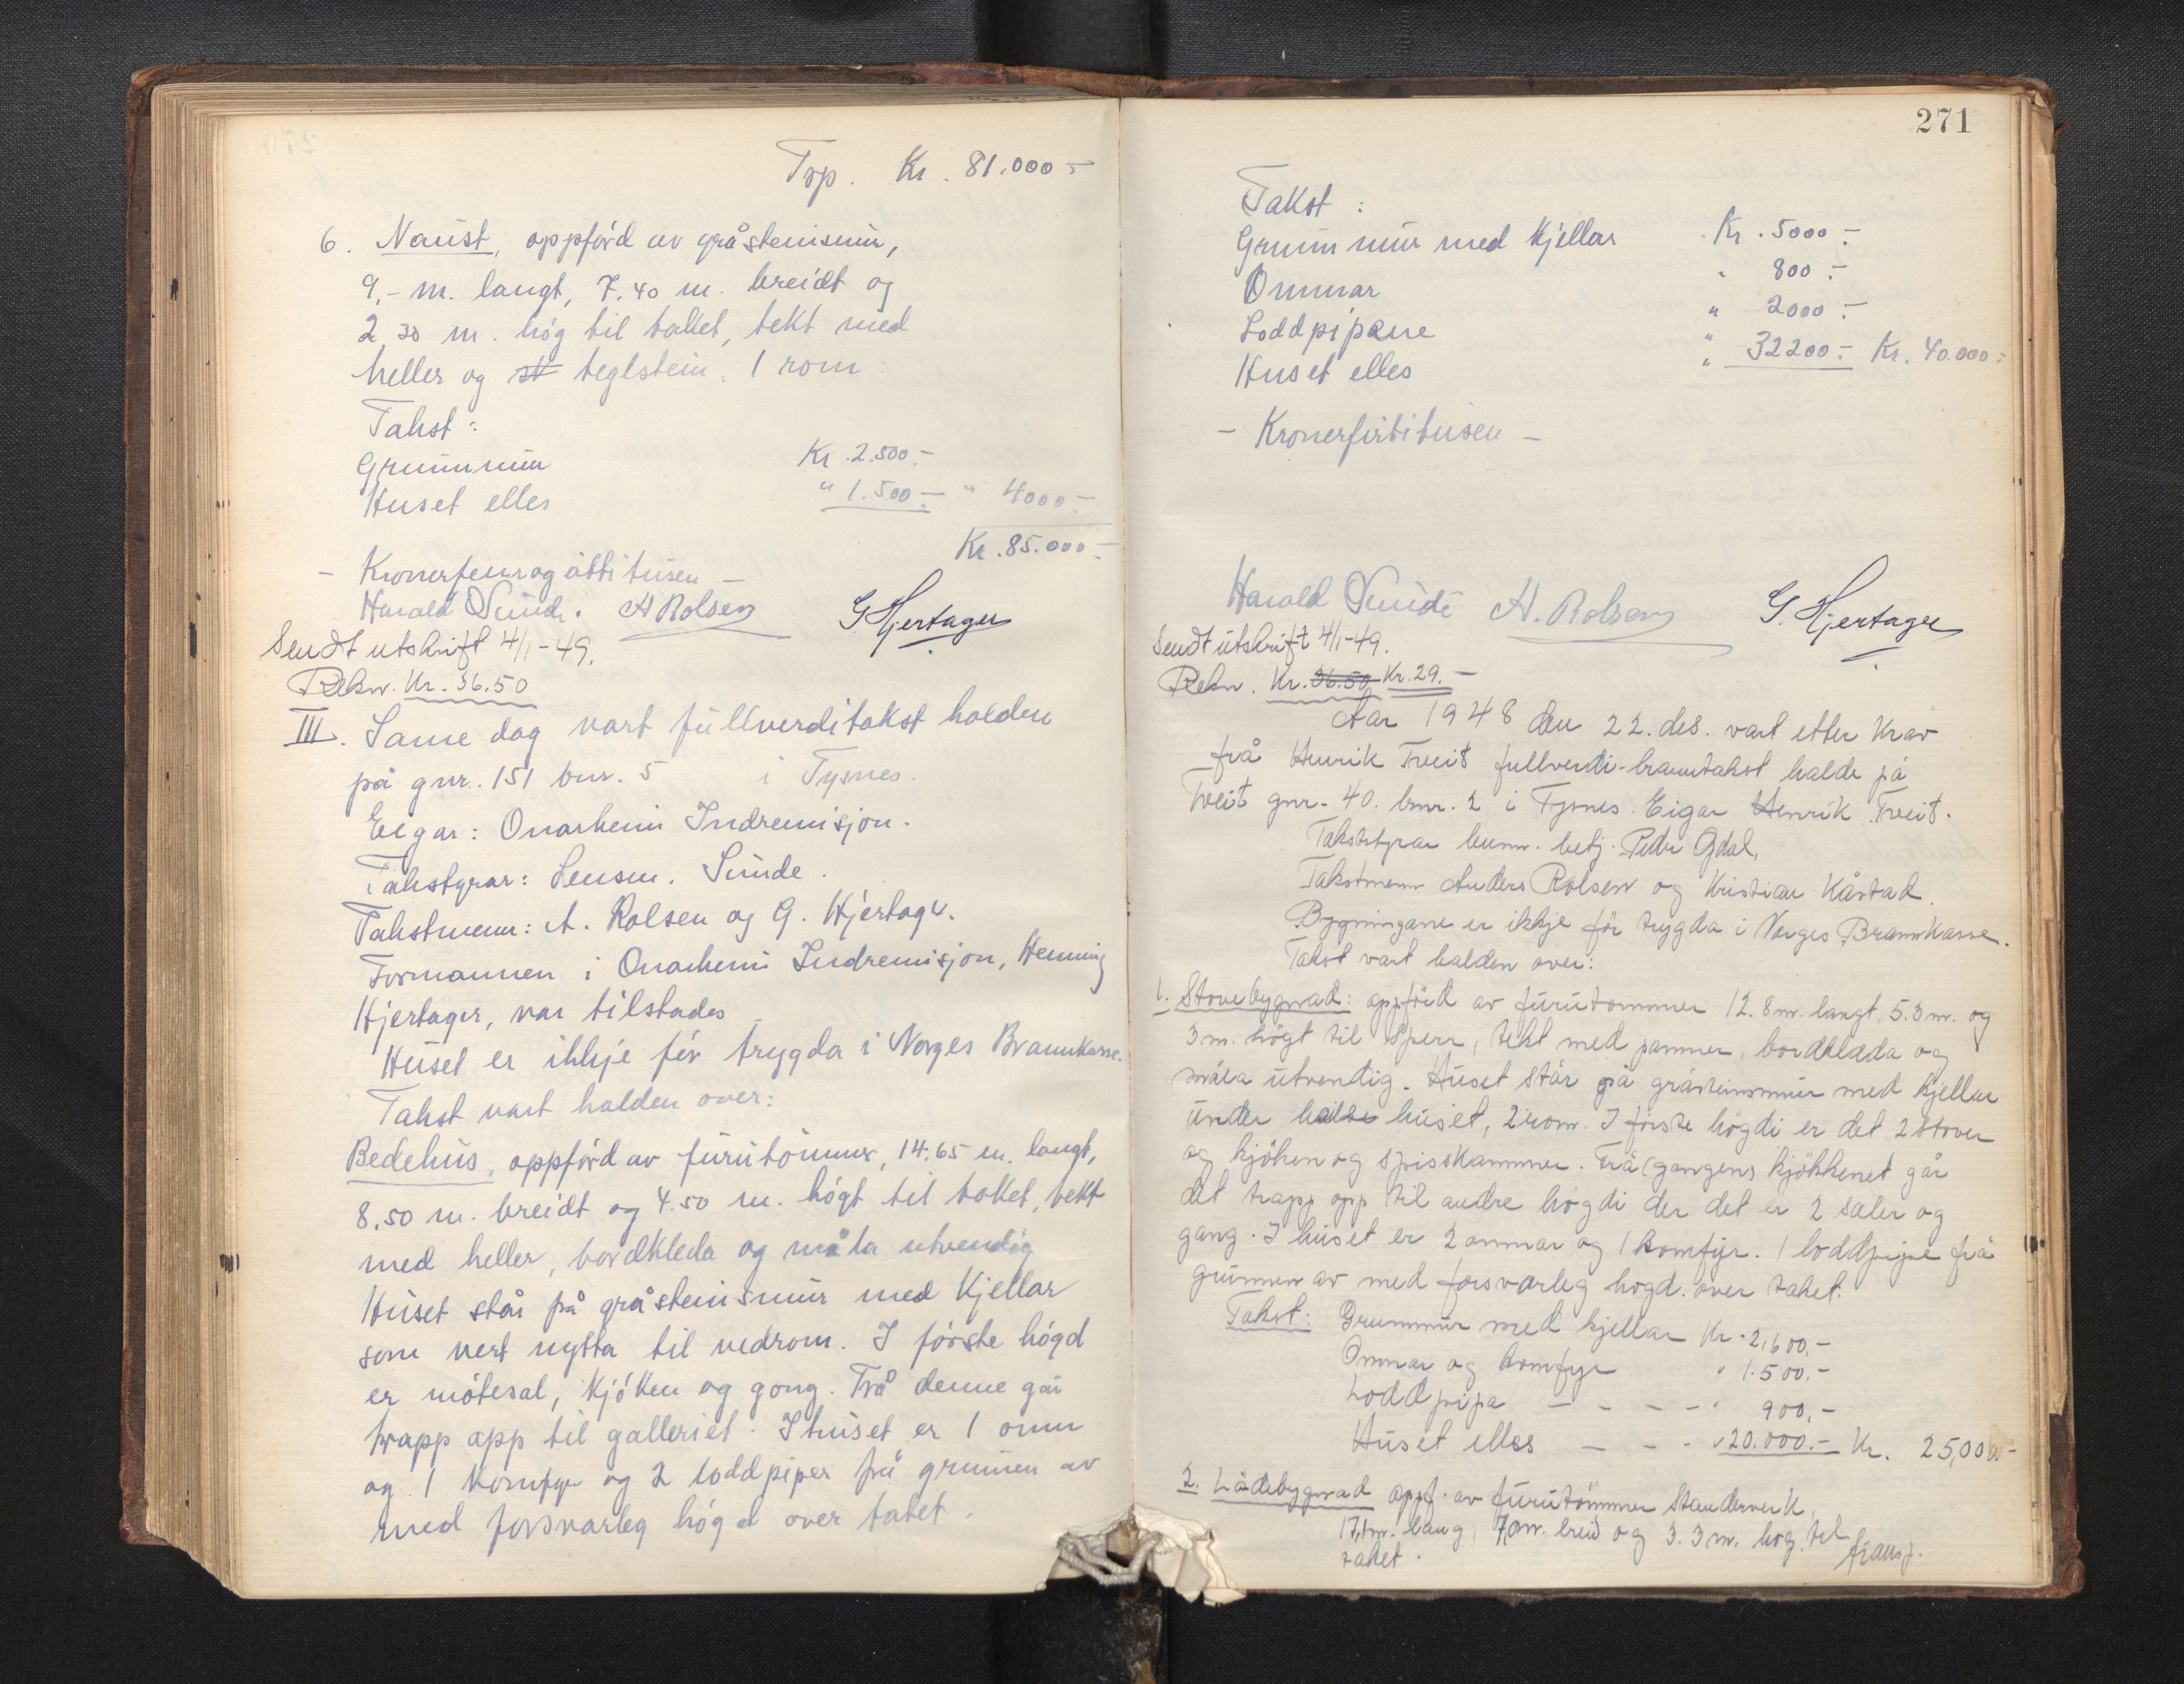 Trp. Kr. 81.000.-
6. Naust, oppförd av gråsteinsmur,
9.- m. langt, 7.40 m. breidt og
2.30 m. hög til taket, tekt med
heller og teglstein. 1 rom.
Takst:
Grunnmur Kr. 2.500.-
Huset elles " 1.500.- " 4000.-
Kr. 85.000.-
- Kronerfemogåttitusen -
Harald Sunde. A Rolsen G. Hjertager
Sendt utskrift 4/1-49.
Rekn. Kr. 36.50
III. Same dag vart fullverditakst halden
på gnr. 151 bnr. 5 i Tysnes.
Eigar: Onarheim Indremisjon.
Takstyrar: Lensm. Sunde.
Takstmenn: A. Rolsen og G. Hjertager.
Formannen i Onarheim Indremisjon, Henning
Hjertager, var tilstades
Huset er ikkje för trygda i Norges Brannkasse.
Takst vart halden over:
Bedehus, oppförd av furutömmer, 14.65 m. langt,
8.50 m. breidt og 4.50 m. högt til taket, tekt
med heller, bordkleda og måla utvendig
Huset står på gråsteinsmur med Kjellar
som vert nytta til vedrom. I förste högd
er mötesal, kjöken og gong. Frå denne går
trapp opp til galleriet. I huset er 1 omn
og 1 komfyr og 2 loddpiper frå grunnen av
med forsvarleg högd over taket.
271
Takst:
Grunnmur med Kjellar Kr. 5000.-
Omnar " 800.-
Loddpipene " 2000.-
Huset elles " 32200.- Kr. 40.000.-
- Kronerførtitusen -
Harald Sunde A. Rolsen G. Hjertager
Sendt utskrift 4/1-49.
Rekn. Kr. 36.50 Kr. 29.-
Aar 1948 den 22. des. vart etter krav
frå Henrik Tveit fullverdi-branntakst halde på
Tveit gnr. 40. bnr. 2 i Tysnes. Eigar Henrik Tveit.
Takststyrar lensm. betj. Peder Ødal,
Takstmenn Anders Rolsen og Kristian Kåstad.
Bygningane er ikkje för trygda i Norges Brannkasse.
Takst vart halden over:
1. Stovebygnad: oppförd av furutömmer 12.8 m. langt, 5.3 m. og
3 m. högt til sperr, tekt med panner, bordklæda og
måla utvendig. Huset står på gråsteinsmur med kjellar
under huset, 2 rom. I förste högdi er det 2 stover
og kjöken og spisskammer. Frå gangen kjökkenet går
det trapp opp til andre högdi der det er 2 saler og
gang. I huset er 2 omnar og 1 komfyr. 1 loddpipe frå
grunnen av med forsvarleg högd. over taket.
Takst: Grunnmur med kjellar Kr. 2,600.-
Omnar og komfyr " 1.500.-
Loddpipa - - - - " 900,-
Huset elles - - - " 20.000.- Kr. 25,000.-
2. Lödebygnad oppf. av furutömmer Standerverk,
17,1 m. lang, 7,0 m. breid og 3.3 m. hög til
taket. transp.